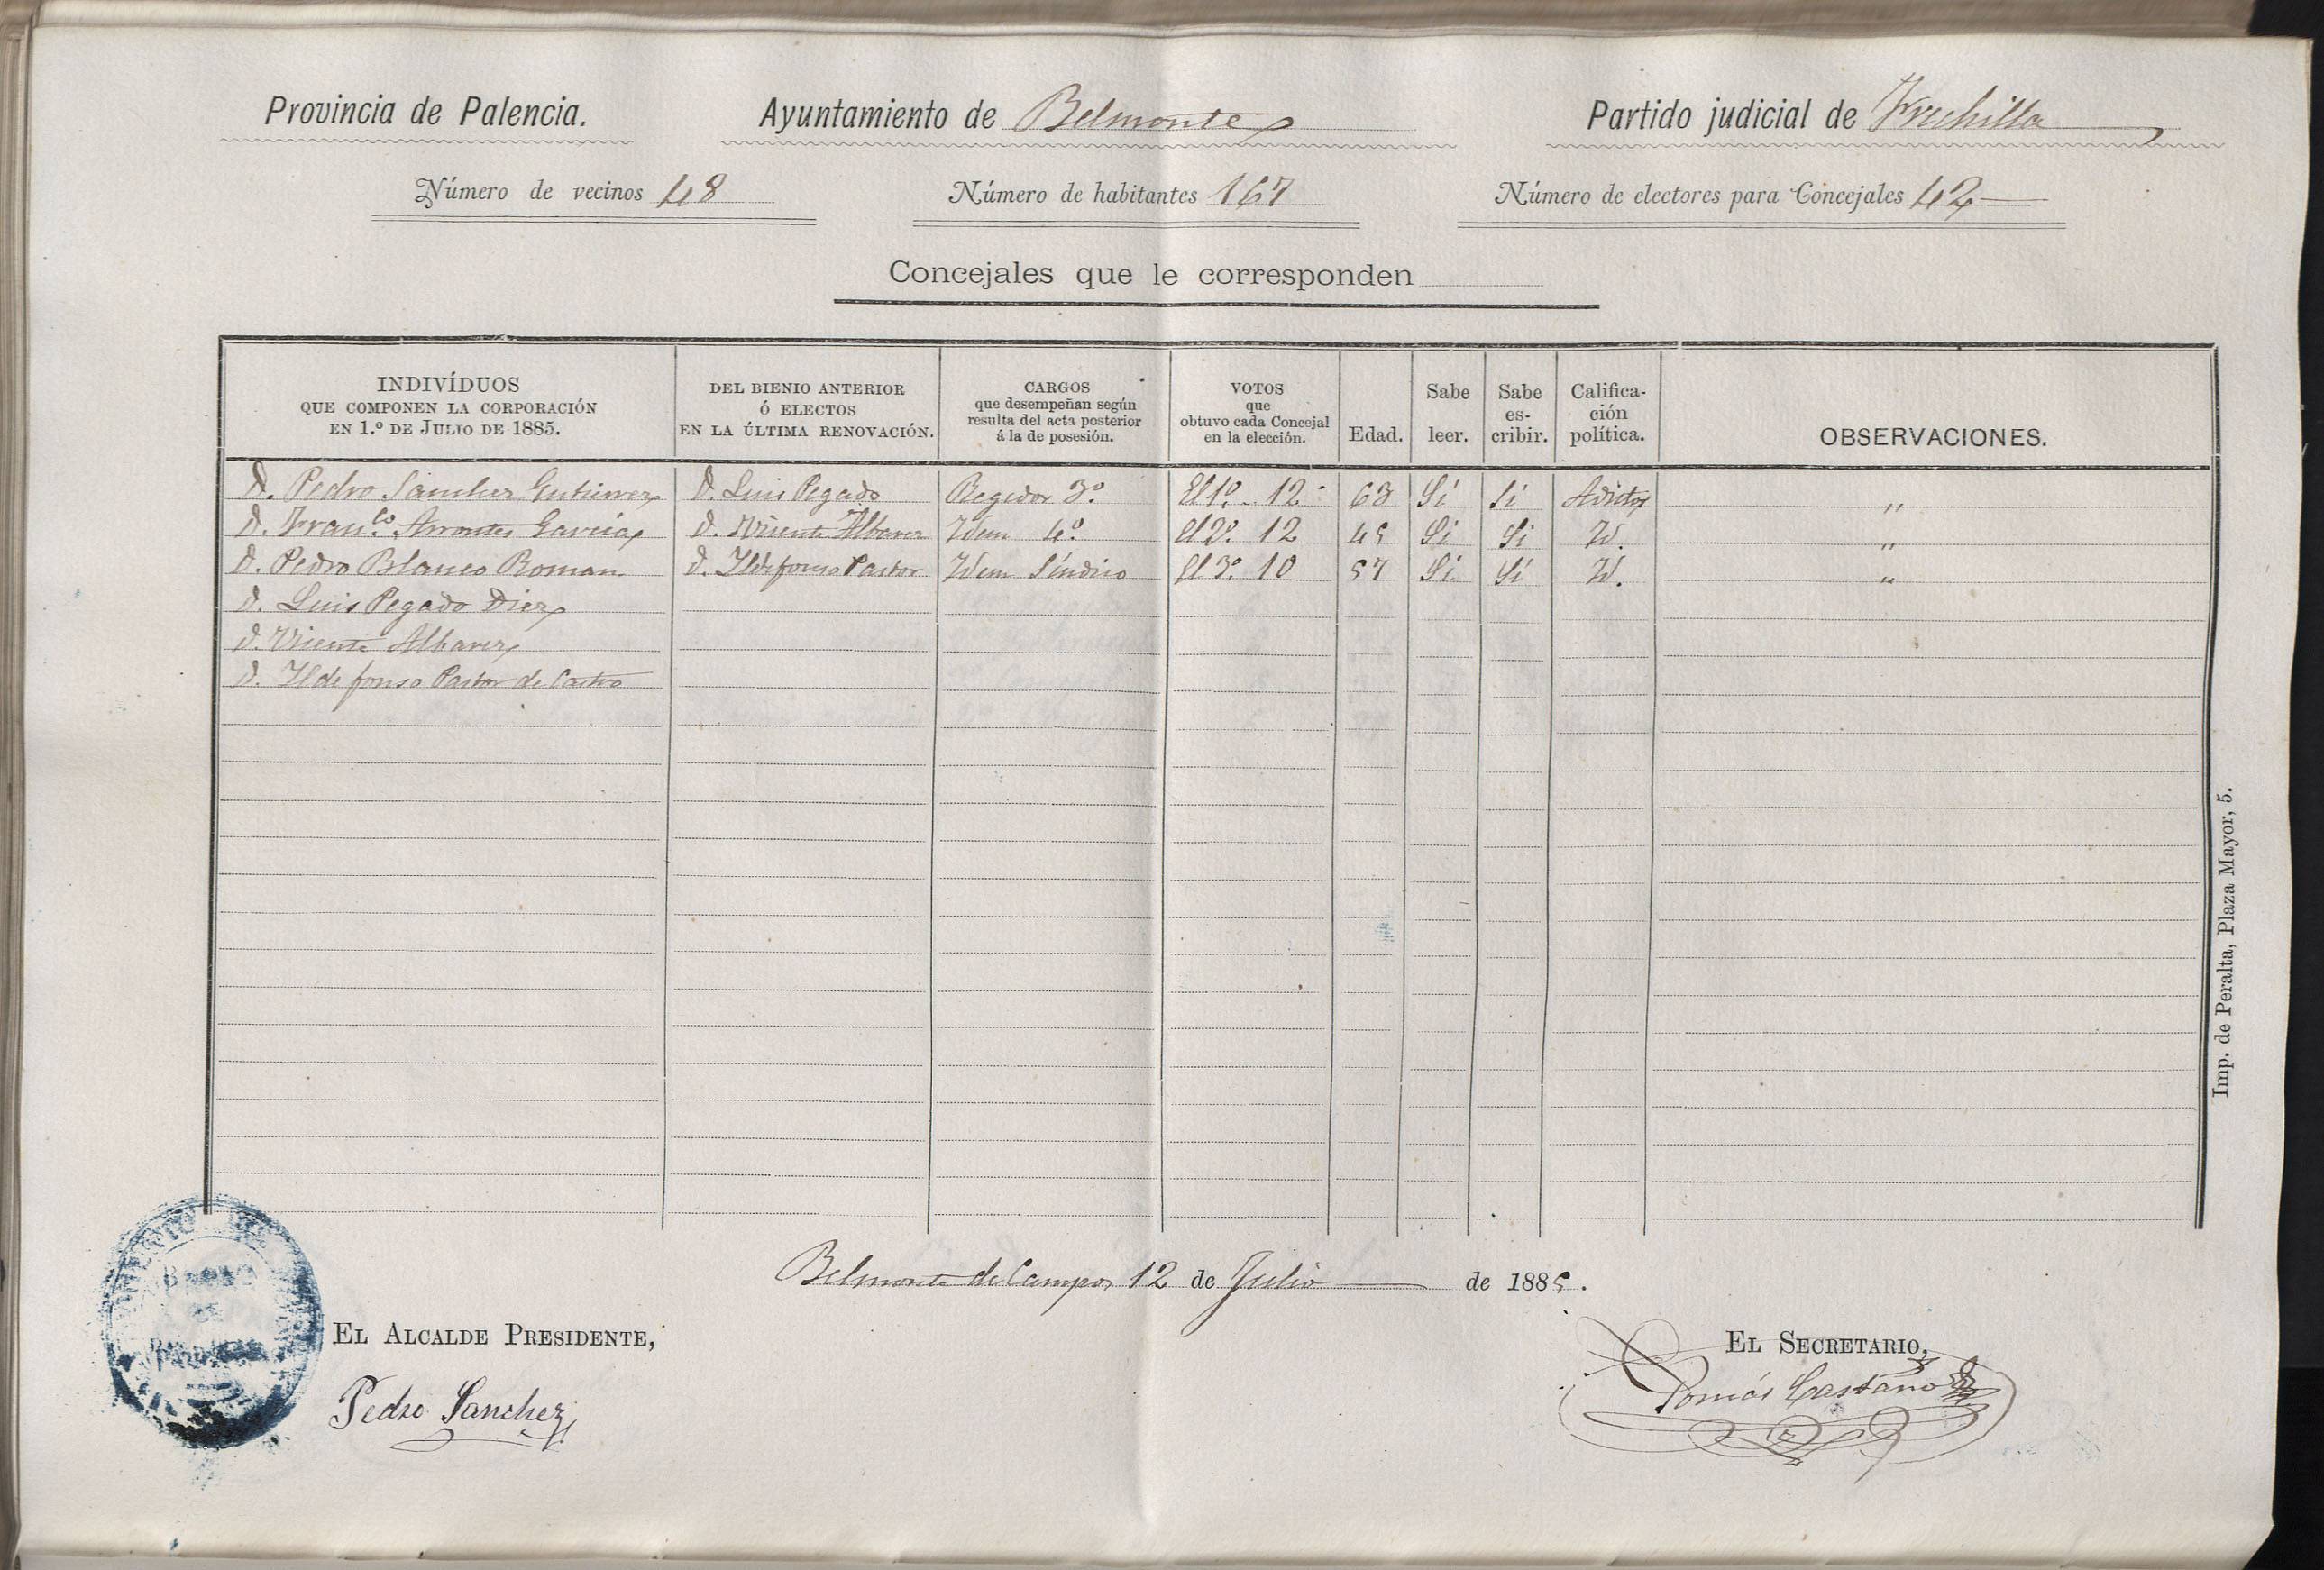 Provincia de Palencia. Ayuntamiento de Belmonte Partido judicial de Frechilla
Número de vecinos 48 Número de habitantes 167 Número de electores para Concejales 42
Concejales que le corresponden
INDIVÍDUOS
QUE COMPONEN LA CORPORACIÓN
EN 1.º DE JULIO DE 1885.
DEL BIENIO ANTERIOR
Ó ELECTOS
EN LA ÚLTIMA RENOVACIÓN.
CARGOS
que desempeñan según
resulta del acta posterior
á la de posesión.
VOTOS
que
obtuvo cada Concejal
en la elección.
Edad.
Sabe
leer.
Sabe
es-
cribir.
Califica-
ción
política.
OBSERVACIONES.
D. Pedro Sanchez Gutierrez D. Luis Pegado Regidor 3.º El 1.º 12 63 Si Si Adicto "
D. Fran.co Arrontes García D. Vicente Albarez Idem 4.º El 2.º 12 45 Si Si Id. "
D. Pedro Blanco Roman D. Ildefonso Pastor Idem Síndico El 3.º 10 57 Si Si Id. "
D. Luis Pegado Diez
D. Vicente Albarez
D. Ildefonso Pastor de Castro
Belmonte de Campos 12 de Julio de 1885.
EL ALCALDE PRESIDENTE,
Pedro Sanchez
EL SECRETARIO,
Tomás Castaño
Imp. de Peralta, Plaza Mayor, 5.